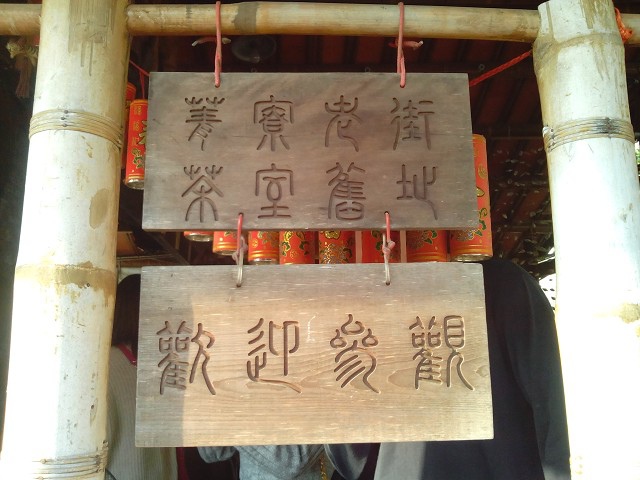 菁寮老街
茶室舊地
歡迎參觀